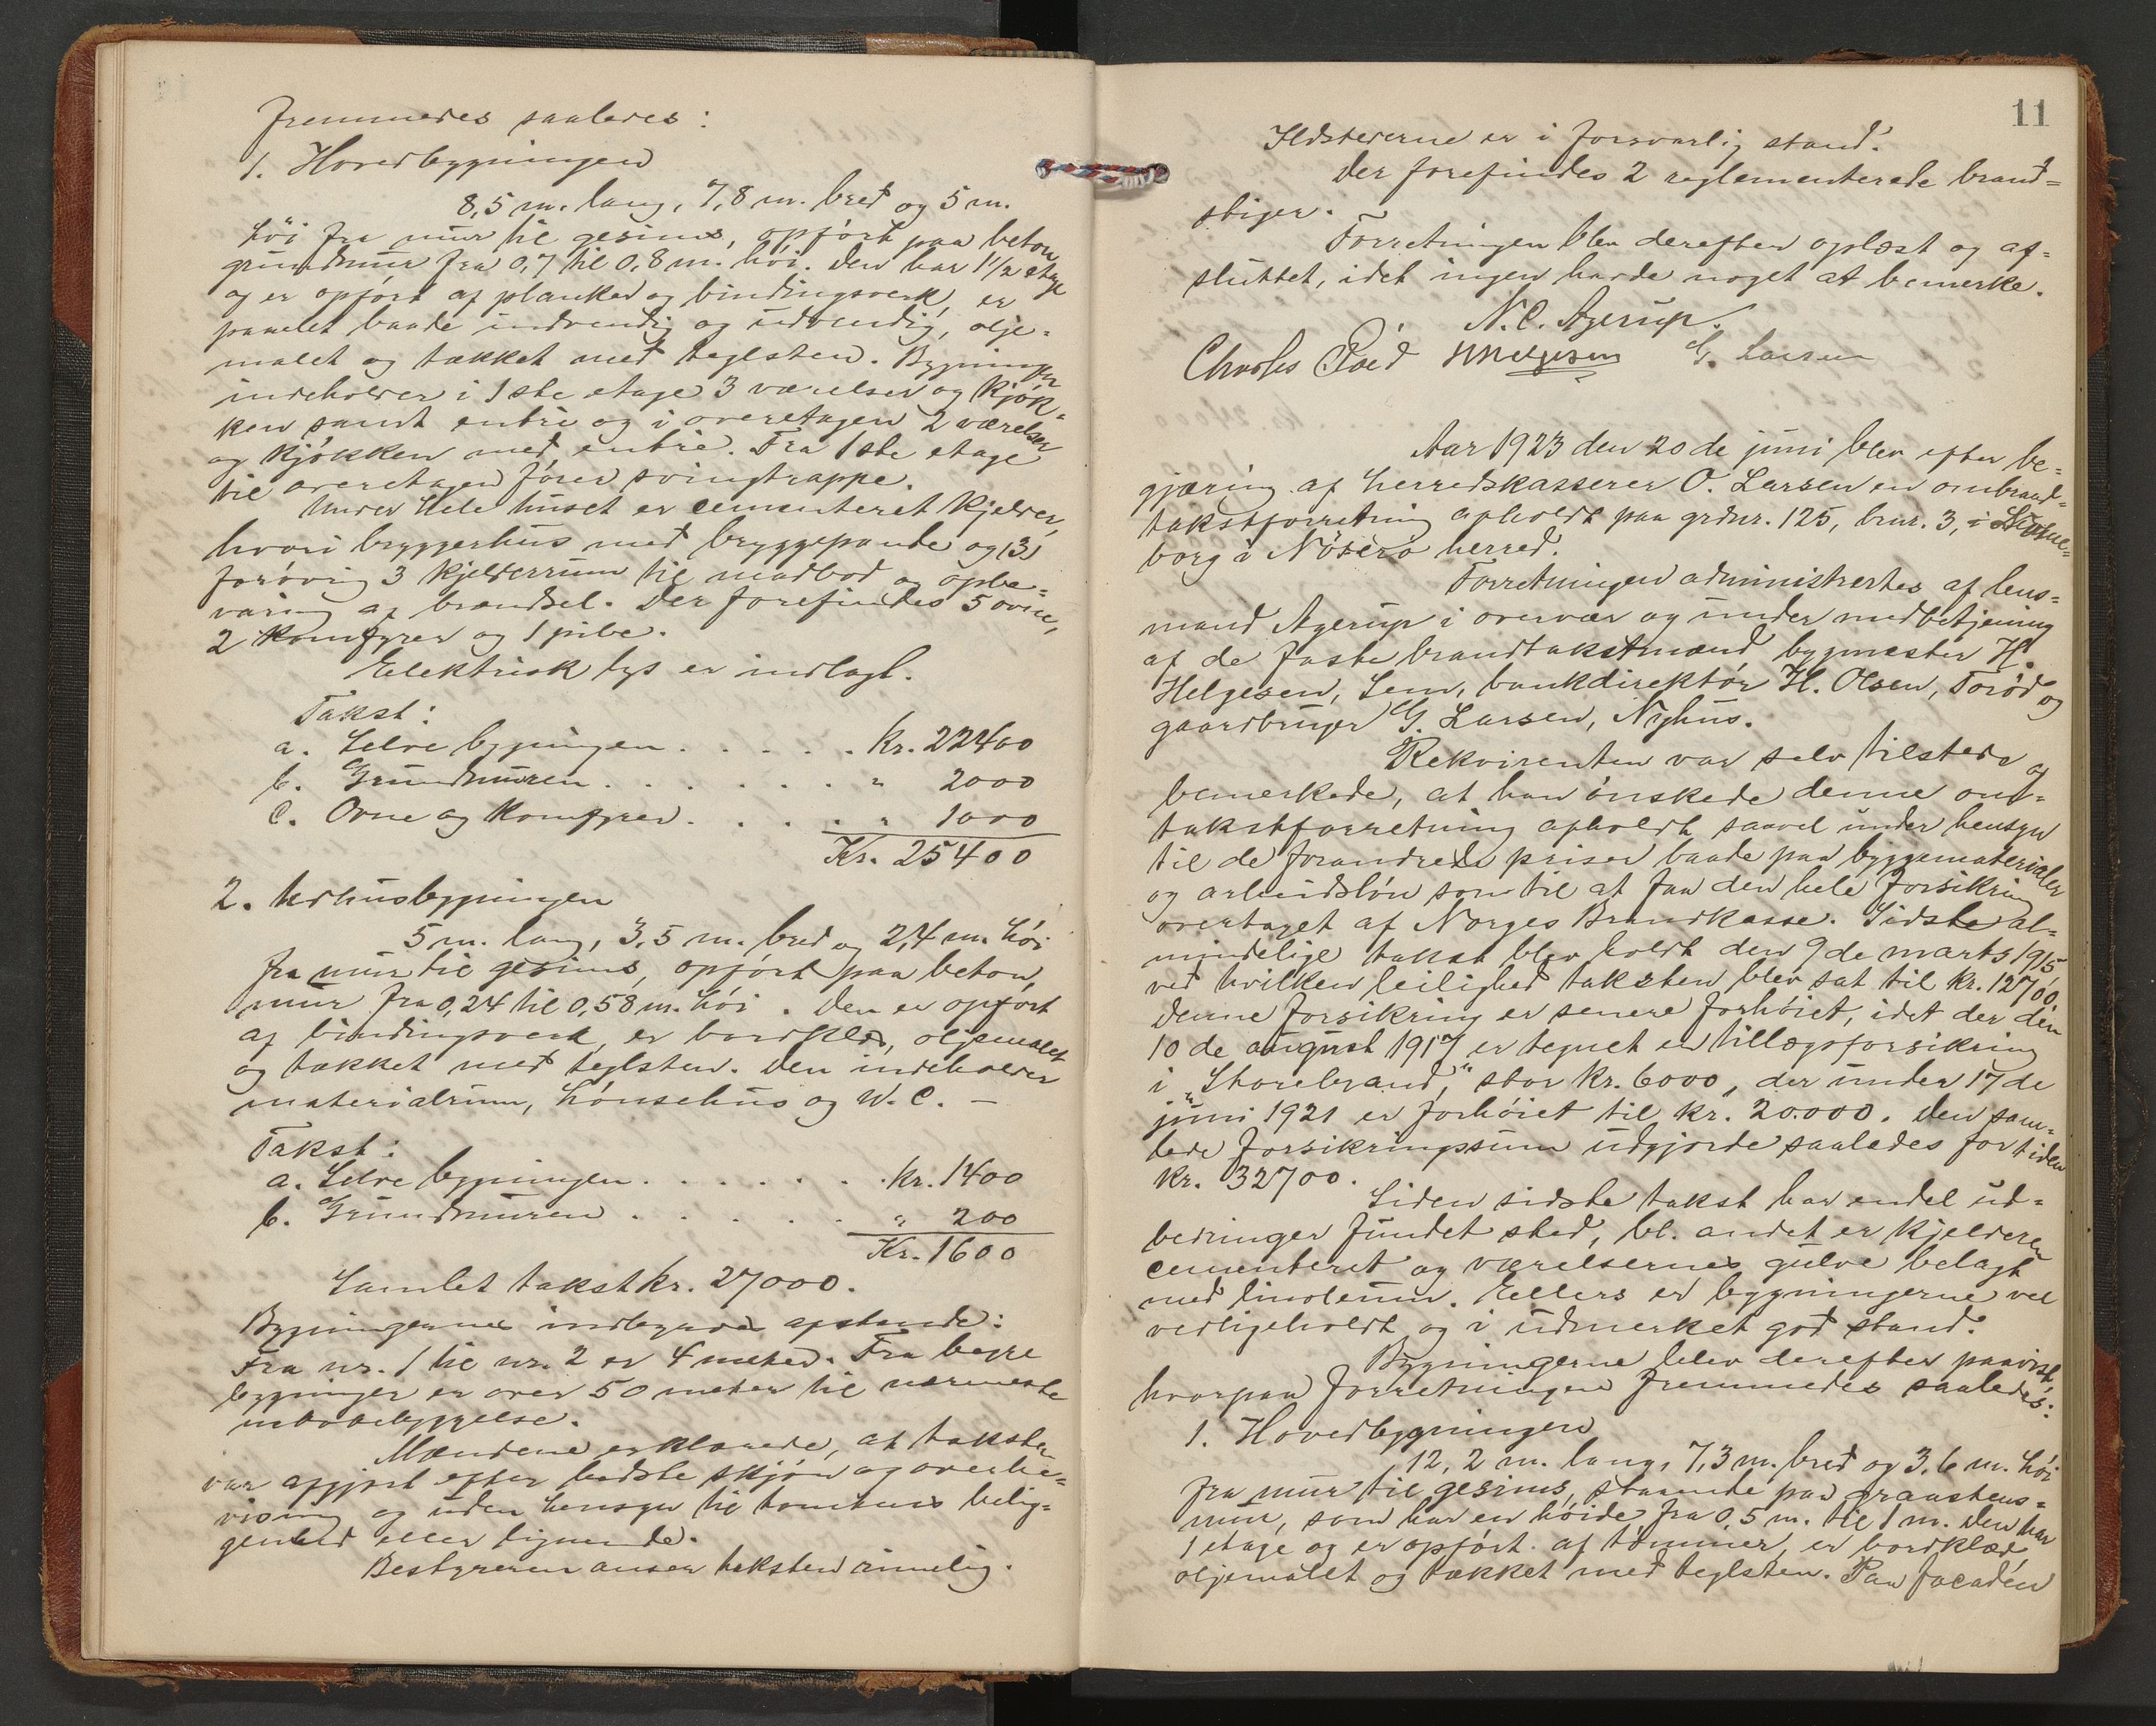 fremmedes saaledes:
1. Hovedbygningen
8,5 m. lang, 7,8 m. bred og 5 m.
höi fra mur til gesims, opfört paa beton
grundmur fra 0,7 til 0,8 m. höi. Den har 1 1/2 etage
og er opfört af planker og bindingsverk, er
panelet baade indvendig og udvendig, olje-
malet og tækket med teglsten. Bygningen
indeholder i 1ste etage 3 værelser og kjök-
ken samt entre og i overetagen 2 værelser
og kjökken med entre. Fra 1ste etage
til overetagen förer svingtrappe.
Under hele huset er cementeret kjelder,
hvori bryggerhus med bryggepande og
forövrig 3 kjelderrum til madbod og opbe-
varing af brændsel. Der forefindes 5 ovne,
2 komfyrer og 1 pibe.
Elektrisk lys er indlagt.
Takst:
a. Selve bygningen . . . . . kr. 22400
b. Grundmuren . . . . . . . " 2000
c. Ovne og komfyrer . . . . " 1000
Kr. 25400
2. Udhusbygningen
5 m. lang, 3,5 m. bred og 2,4 m. höi
fra mur til gesims, opfört paa beton,
mur fra 0,24 til 0,58 m. höi. Den er opfört
af bindingsverk, er bordklæd, oljemalet
og tækket med teglsten. Den indeholder
materialrum, hönsehus og W.C. —
Takst:
a. Selve bygningen . . . . . . kr. 1400
b. Grundmuren . . . . . " 200
Kr. 1600
Samlet takst kr. 27000.
Bygningernes indbyrdes afstande:
Fra nr. 1 til nr. 2 er 4 meter. Fra begge
bygninger er over 50 meter til nærmeste
nabobebyggelse.
Mændene erklærede, at taksten
var afgjort efter bedste skjön og overbe-
visning og uden hensyn til tomtens belig-
genhed eller lignende.
Bestyreren anser taksten rimelig.
11
Ildstederne er i forsvarlig stand.
Der forefindes 2 reglementerede brand-
stiger.
Forretningen blev derefter oplæst og af-
sluttet, idet ingen havde noget at bemerke.
N.C. Agerup.
Charles Röed H Helgesen G. Larsen
Aar 1923 den 20de juni blev efter be-
gjæring af herredskasserer O. Larsen en ombrand-
takstforretning afholdt paa grdnr. 125, brnr. 3, i
borg i Nöterö herred.
Forretningen administrertes af lens-
mand Agerup i overvær og under medbetjening
af de faste brandtakstmænd bygmester H.
Helgesen, Sem, bankdirektör H. Olsen, Toröd og
gaardbruger G. Larsen, Nyhus.
Rekvirenten var selv tilstede og
bemerkede, at han önskede denne om-
takstforretning afholdt saavel under hensyn
til de forandrede priser baade paa byggematerialer
og arbeidslön som til at faa den hele forsikring
overtaget af Norges Brandkasse. Sidste al-
mindelige takst blev holdt den 9de marts 1915,
ved hvilken leilighed taksten blev sat til kr. 12700.
Denne forsikring er senere forhöiet, idet der den
10de august 1917 er tegnet en tillægsforsikring
i „Storebrand," stor kr. 6000, der under 17de
juni 1921 er forhöiet til kr. 20.000. Den sam-
lede forsikringssum udgjorde saaledes for tiden
kr. 32700.
Siden sidste takst har endel ud-
bedringer fundet sted, bl. andet er kjelderen
cementeret og værelsernes gulve belagt
med linoleum. Ellers er bygningerne vel
vedligeholdt og i udmerket god stand.
Bygningerne blev derefter paavist,
hvorpaa forretningen fremmedes saaledes:
1. Hovedbygningen
12,2 m. lang, 7,3 m. bred og 3,6 m. höi
fra mur til gesims, staaende paa graastens-
mur, som har en höide fra 0,5 m. til 1 m. Den har
1 etage og er opfört af tömmer, er bordklæd,
oljemalet og tækket med teglsten. Paa facaden